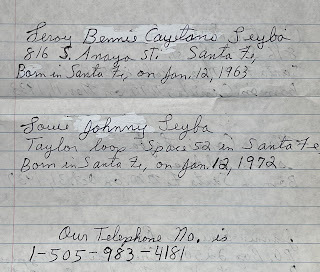 Leroy Bennie Cayetano Leyba
816 S. Anaya St. Santa Fe,
Born in Santa Fe, on Jan. 12, 1963
Louie Johnny Leyba
Taylor loop Space 52 in Santa Fe,
Born in Santa Fe, on Jan. 12, 1972
Our Telephone No. is
1-505-983-4181